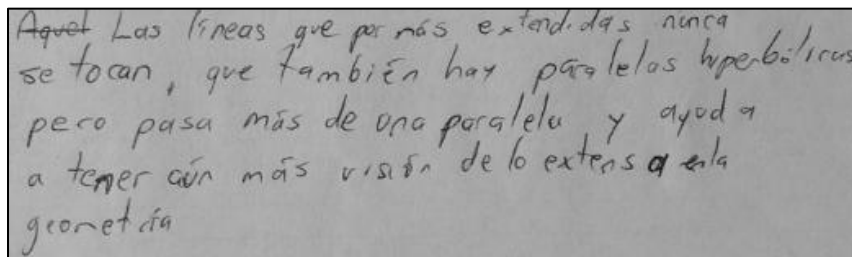 Aquel Las líneas que por más extendidas nunca
se tocan, que también hay paralelas hiperbólicas
pero pasa más de una paralela y ayuda
a tener aún más visión de lo extensa en la
geometría